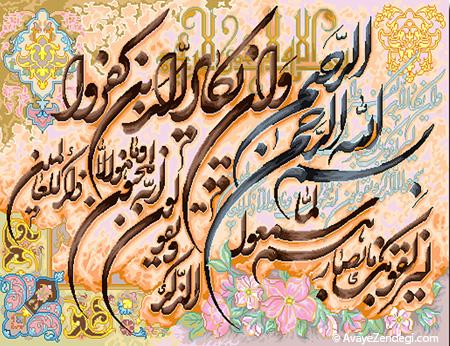 بسم الله الرحمن الرحیم
وان یکاد الذین کفروا
لیزلقونک بابصارهم
لما سمعوا
الذکر
ویقولون
انه لمجنون
وما هو الا
ذکر للعالمین
© AvayeZendegi.com